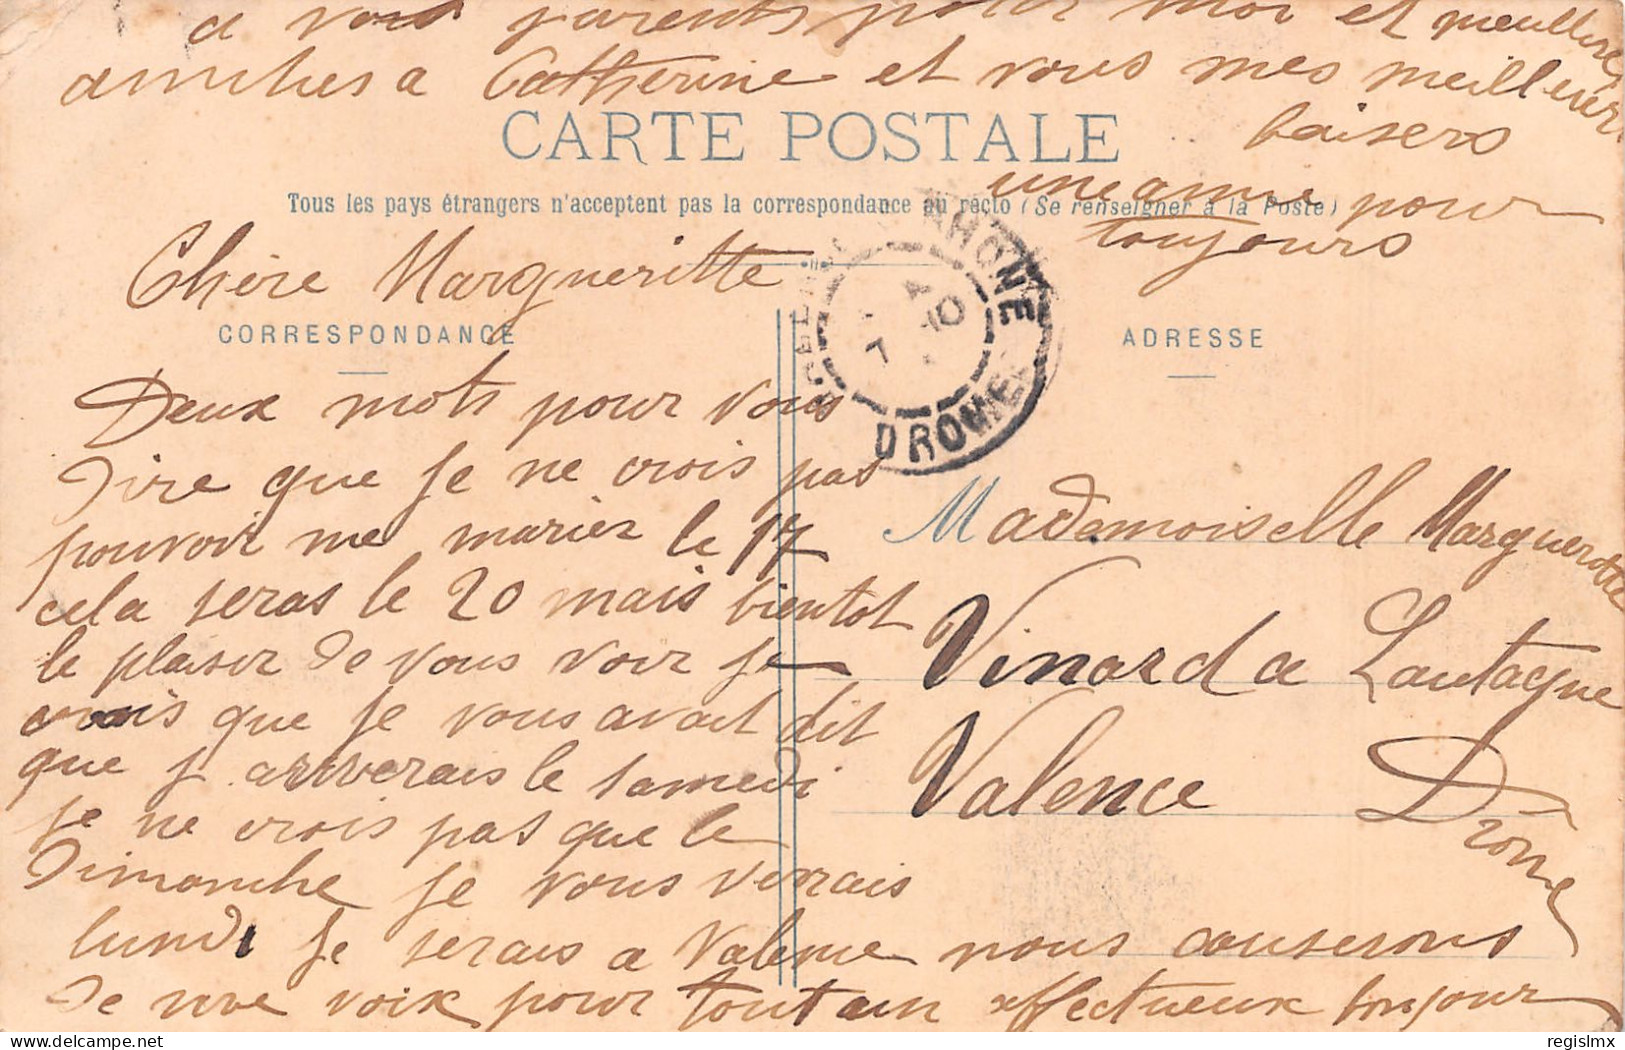 a vos parents pour moi et meilleures
amities a Catherine et vous mes meilleurs
baisers
une amie pour
toujours
CARTE POSTALE
Tous les pays étrangers n'acceptent pas la correspondance au recto (Se renseigner à la Poste)
Chère Margueritte
CORRESPONDANCE
Deux mots pour vous
dire que je ne crois pas
pouvoir me marier le 17
cela seras le 20 mais bientot
le plaisir de vous voir je
crois que je vous avait dit
que j arriverais le samedi
je ne crois pas que le
dimanche je vous verrais
lundi je serais a Valence nous causerons
de vive voix pour tout un affectueux bonjour
DROME
ADRESSE
Mademoiselle Marguerotte
Vinard a Lautagne
Valence Drôme
regislmx